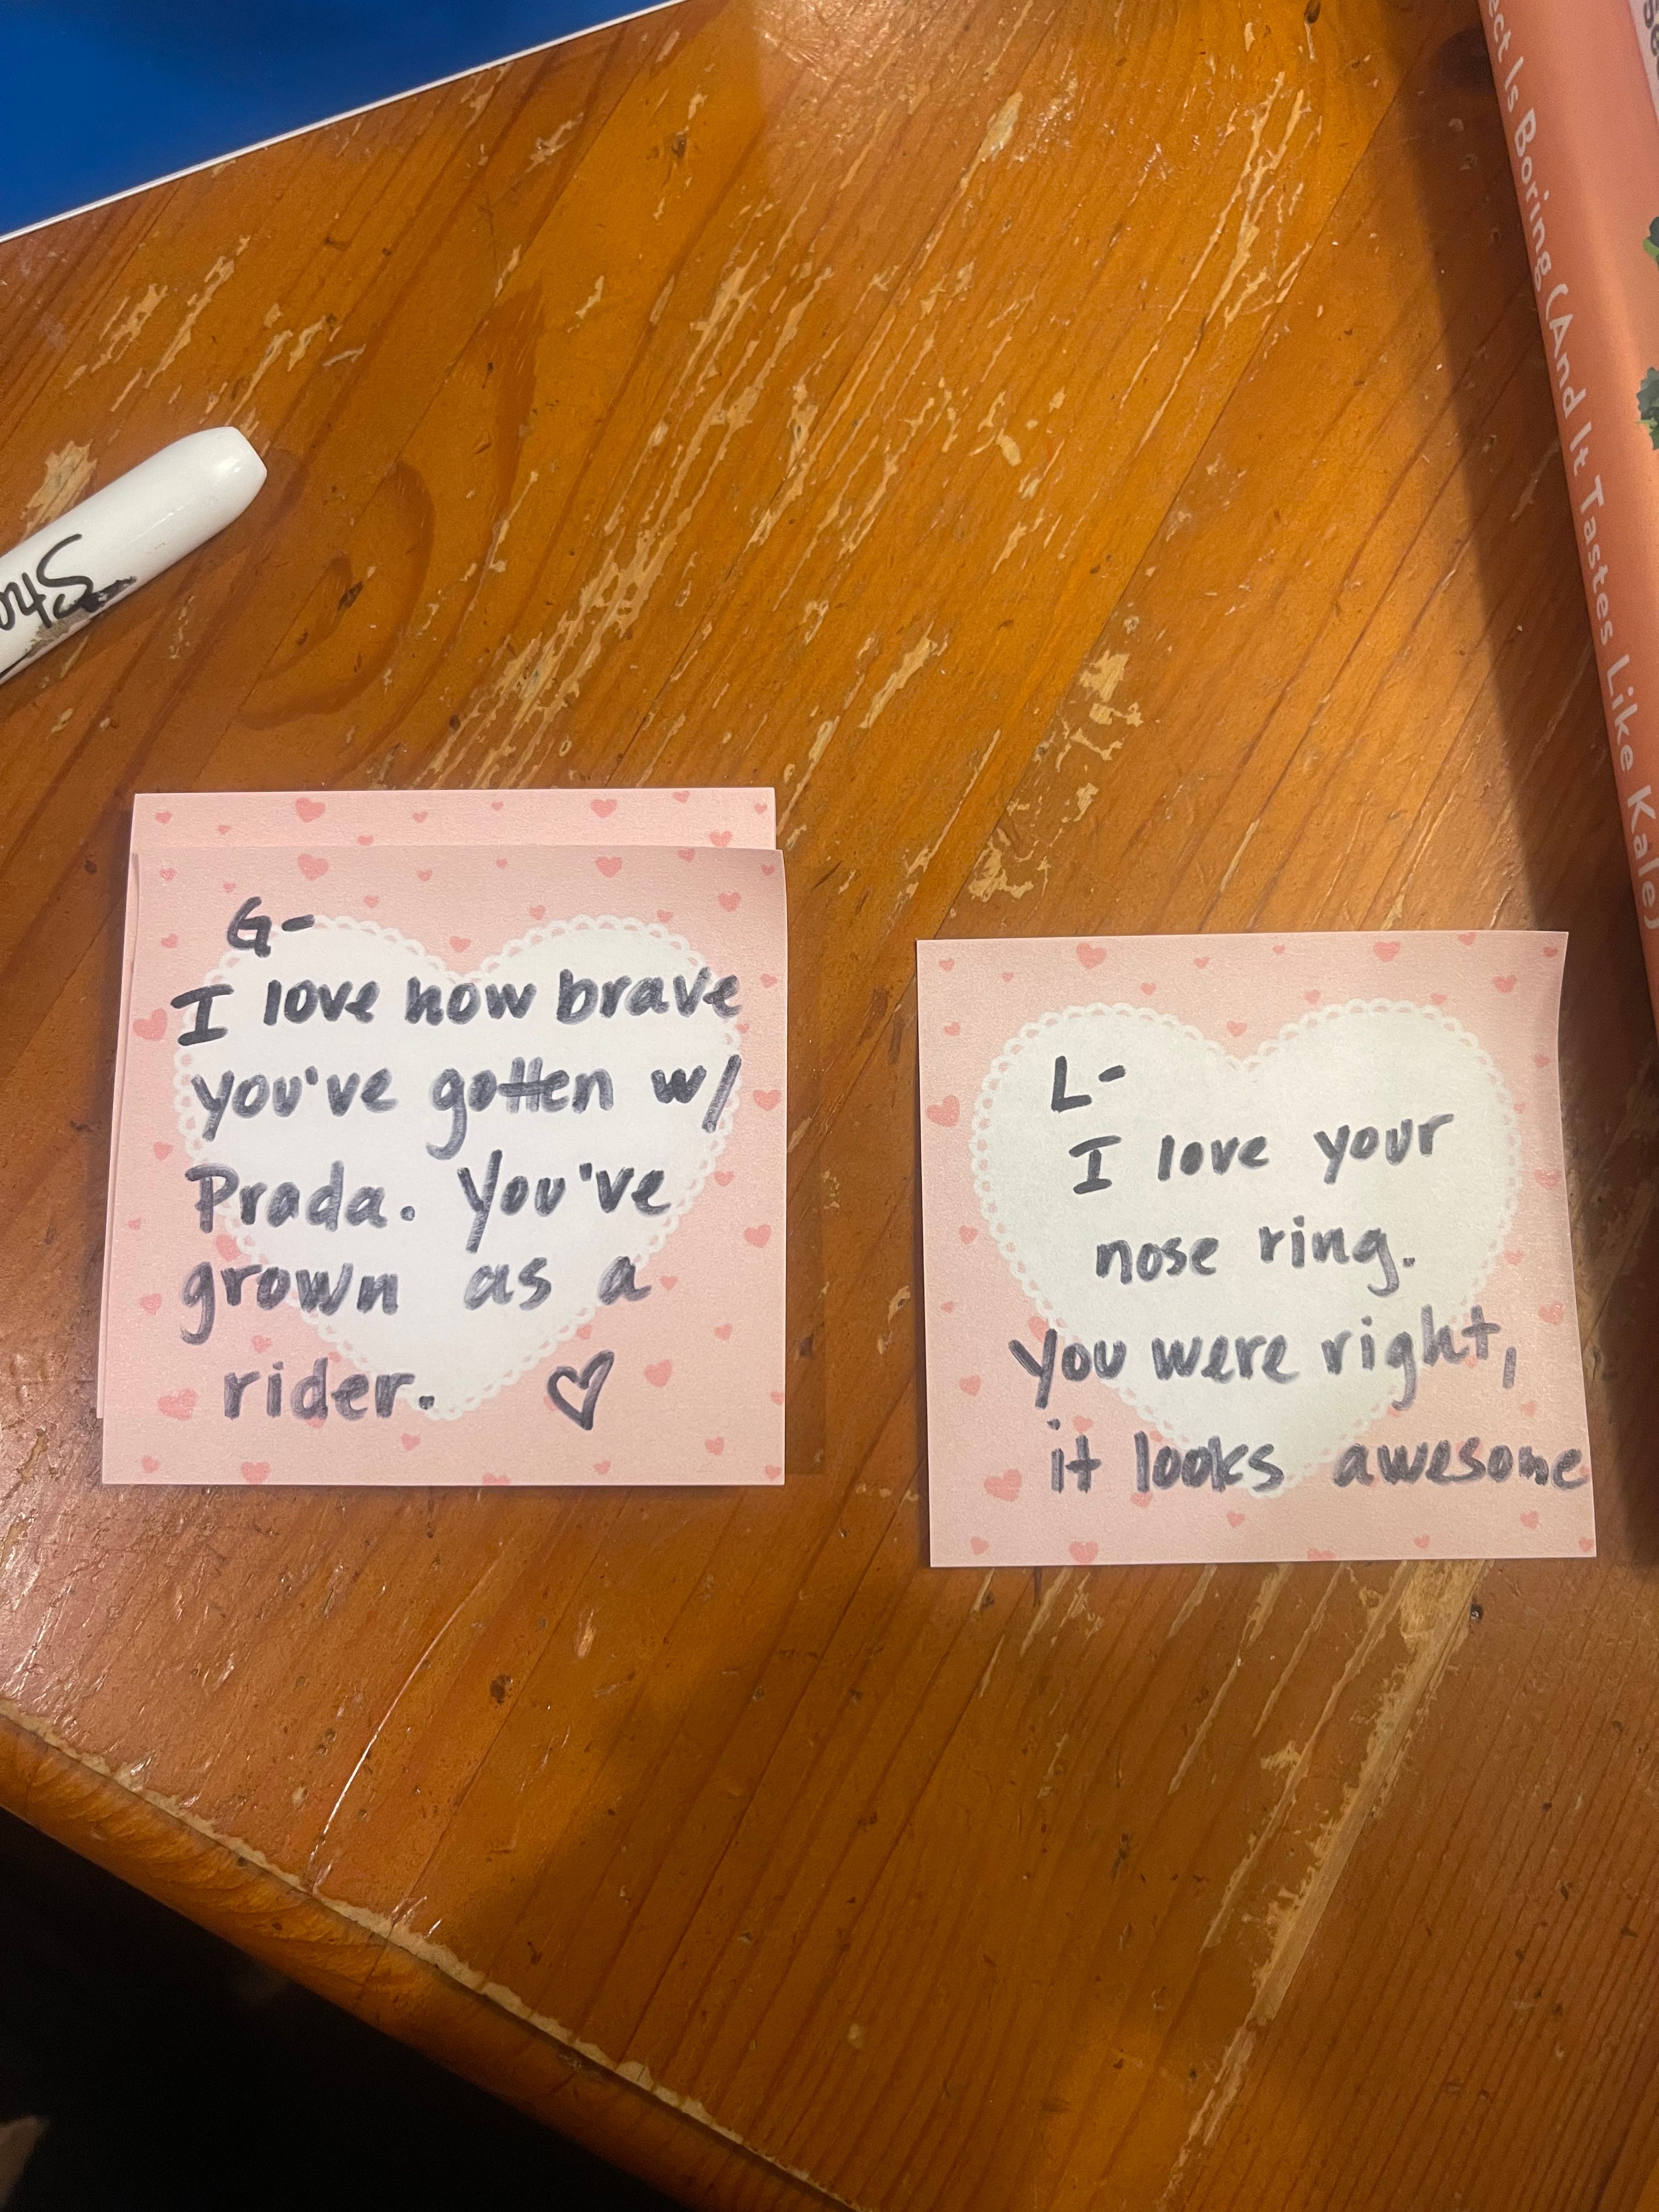 G-
I love how brave
you've gotten w/
Prada. You've
grown as a
rider. ♡
L-
I love your
nose ring.
You were right,
it looks awesome
Is Boring (And It Tastes Like Kale)